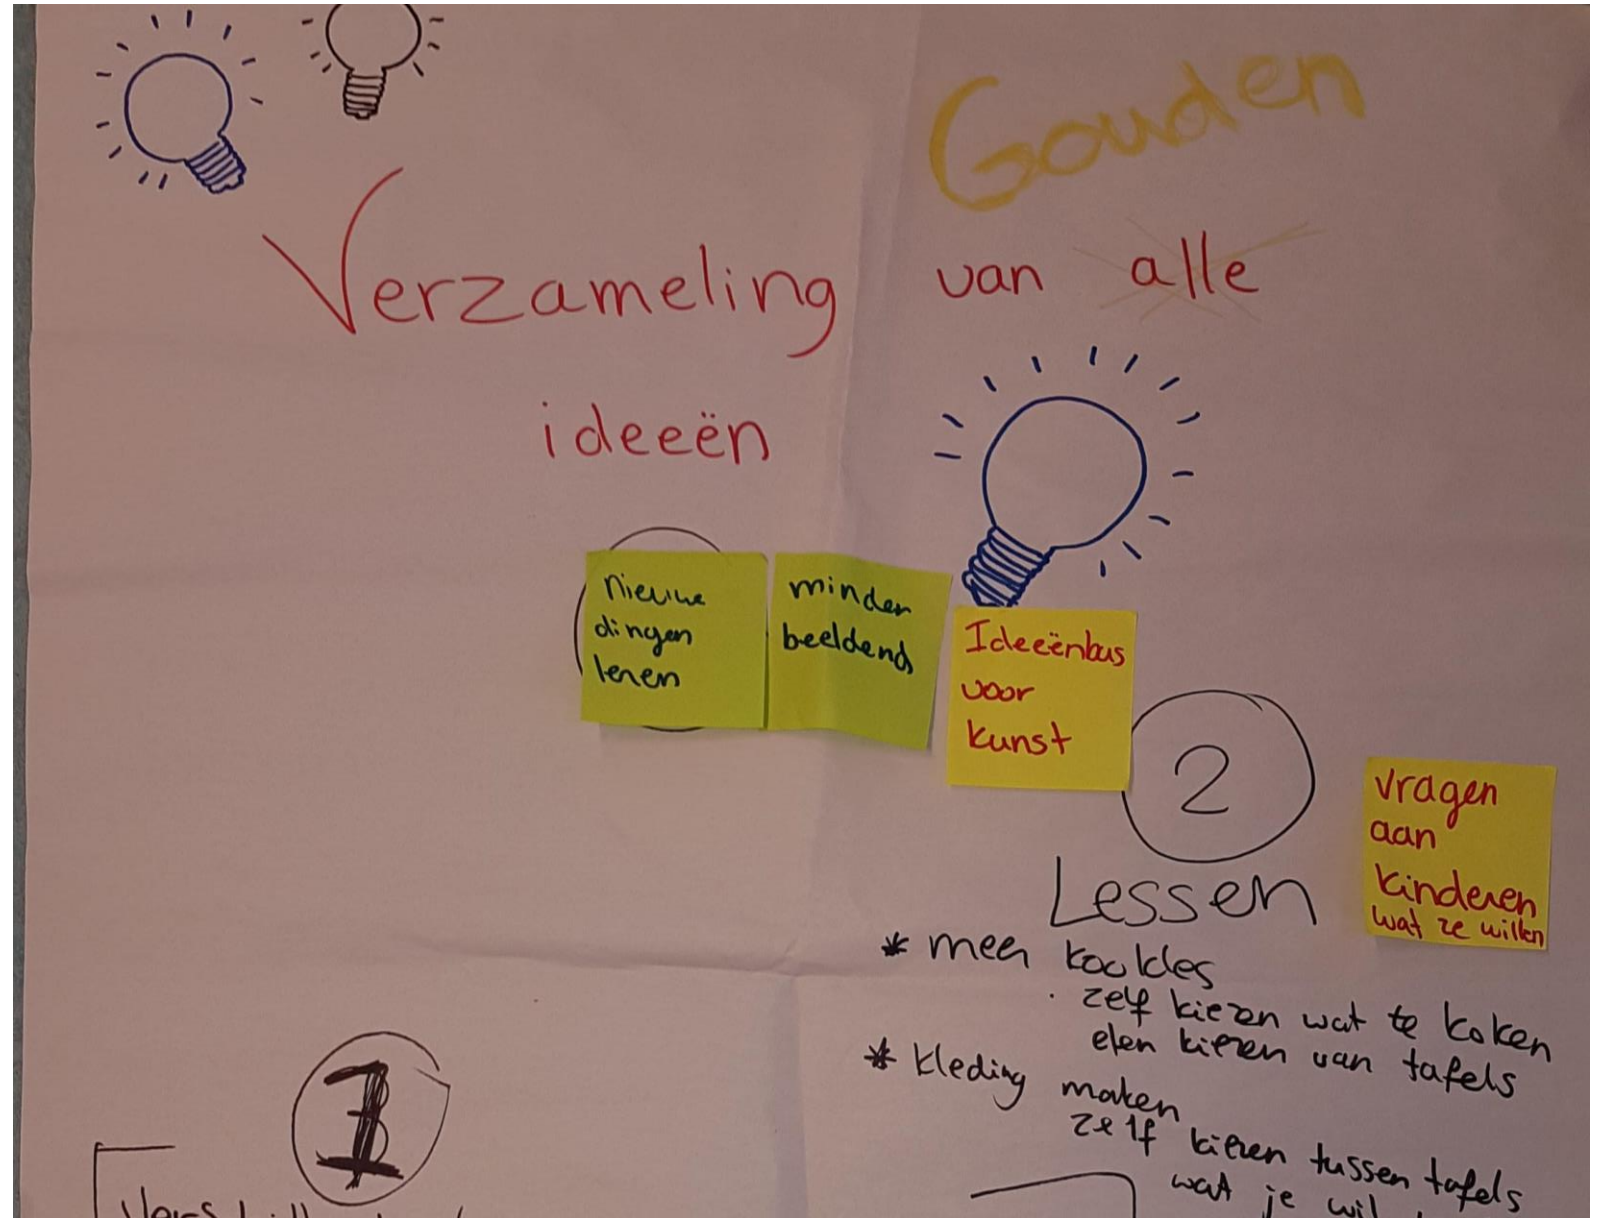 Gouden
Verzameling van alle
ideeën
nieuwe
dingen
leren
minder
beeldend
Ideeënbus
voor
kunst
2
vragen
aan
kinderen
wat ze willen
Lessen
* meer kookles
· zelf kiezen wat te koken
eten kiezen van tafels
* kleding maken
zelf kiezen tussen tafels
wat je wil
1